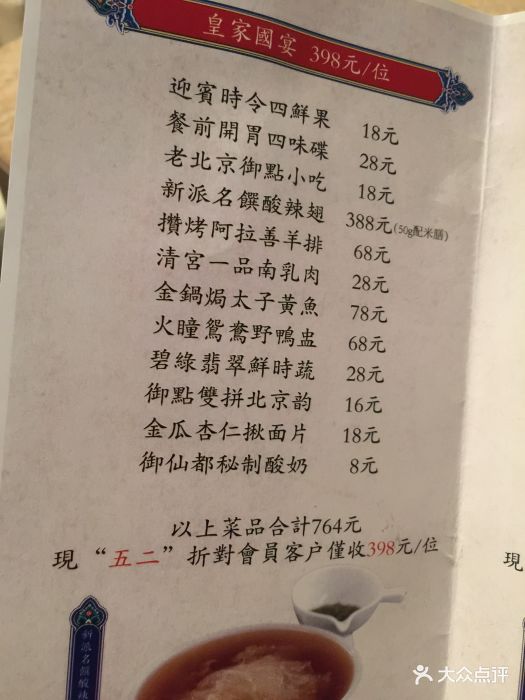 皇家國宴 398元/位
迎賓時令四鮮果 18元
餐前開胃四味碟 28元
老北京御點小吃 18元
新派名饌酸辣翅 388元(50g配米膳)
攢烤阿拉善羊排 68元
清宮一品南乳肉 28元
金鍋焗太子黃魚 78元
火瞳鴛鴦野鴨盅 68元
碧綠翡翠鮮時蔬 28元
御點雙拼北京韵 16元
金瓜杏仁揪面片 18元
御仙都秘制酸奶 8元
以上菜品合計764元
現“五二”折對會員客户僅收398元/位
現
新派名饌酸辣
大众点评